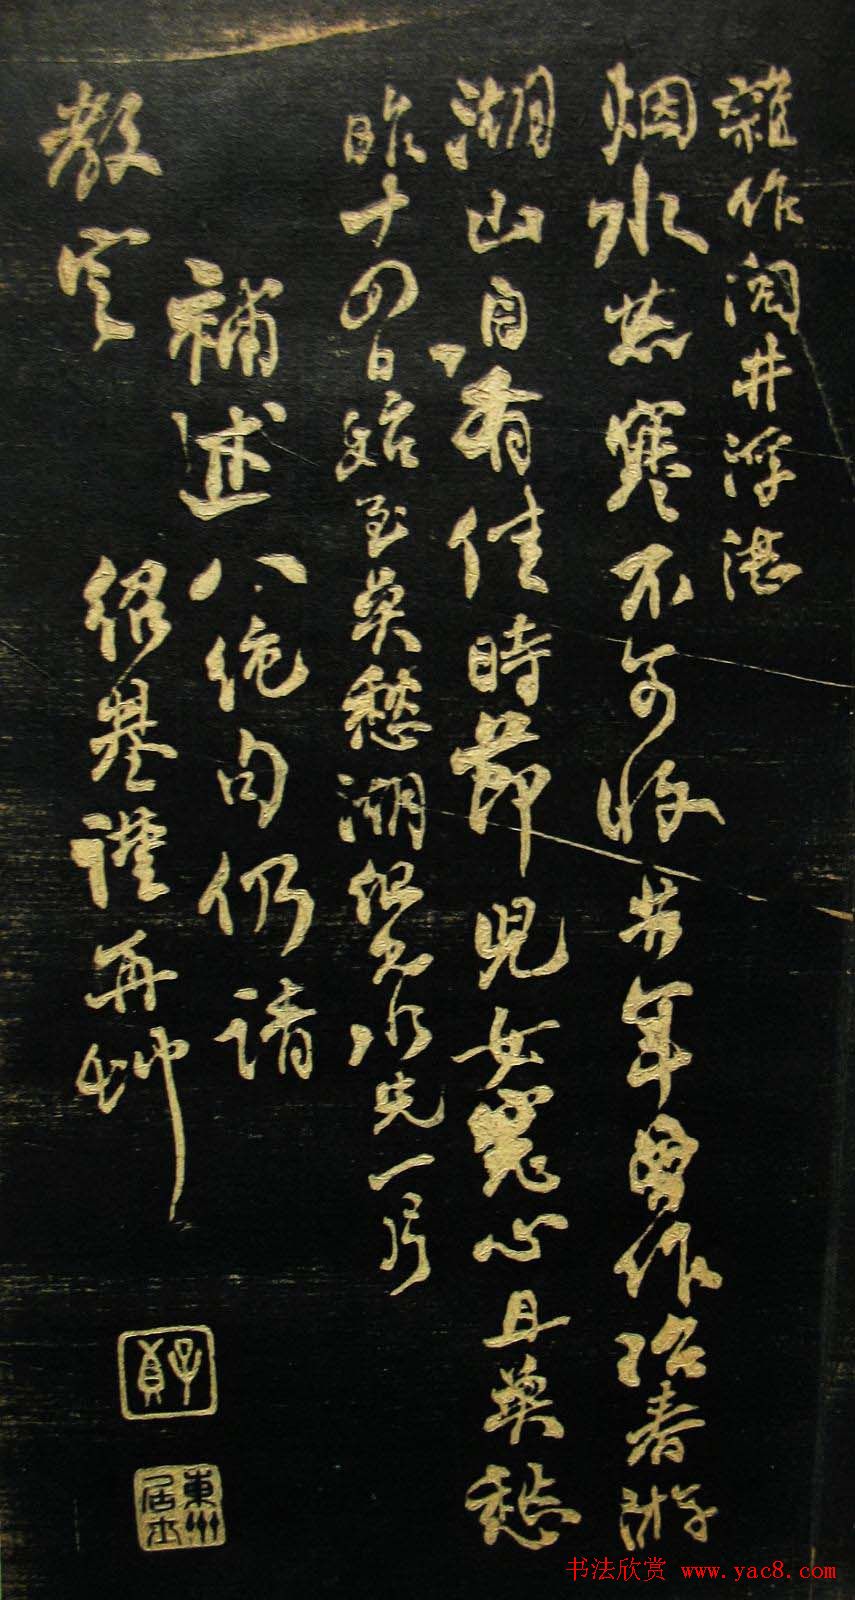 雜作閭井浮湛
烟水荒寒不可收廿年曾作冶春游
湖山自有佳時節兒女寬心且莫愁
昨十四日始至莫愁湖但見水光一片
補述八絕句仍請
教定 紹基謹再艸
子貞
東洲居士
书法欣赏 www.yac8.com